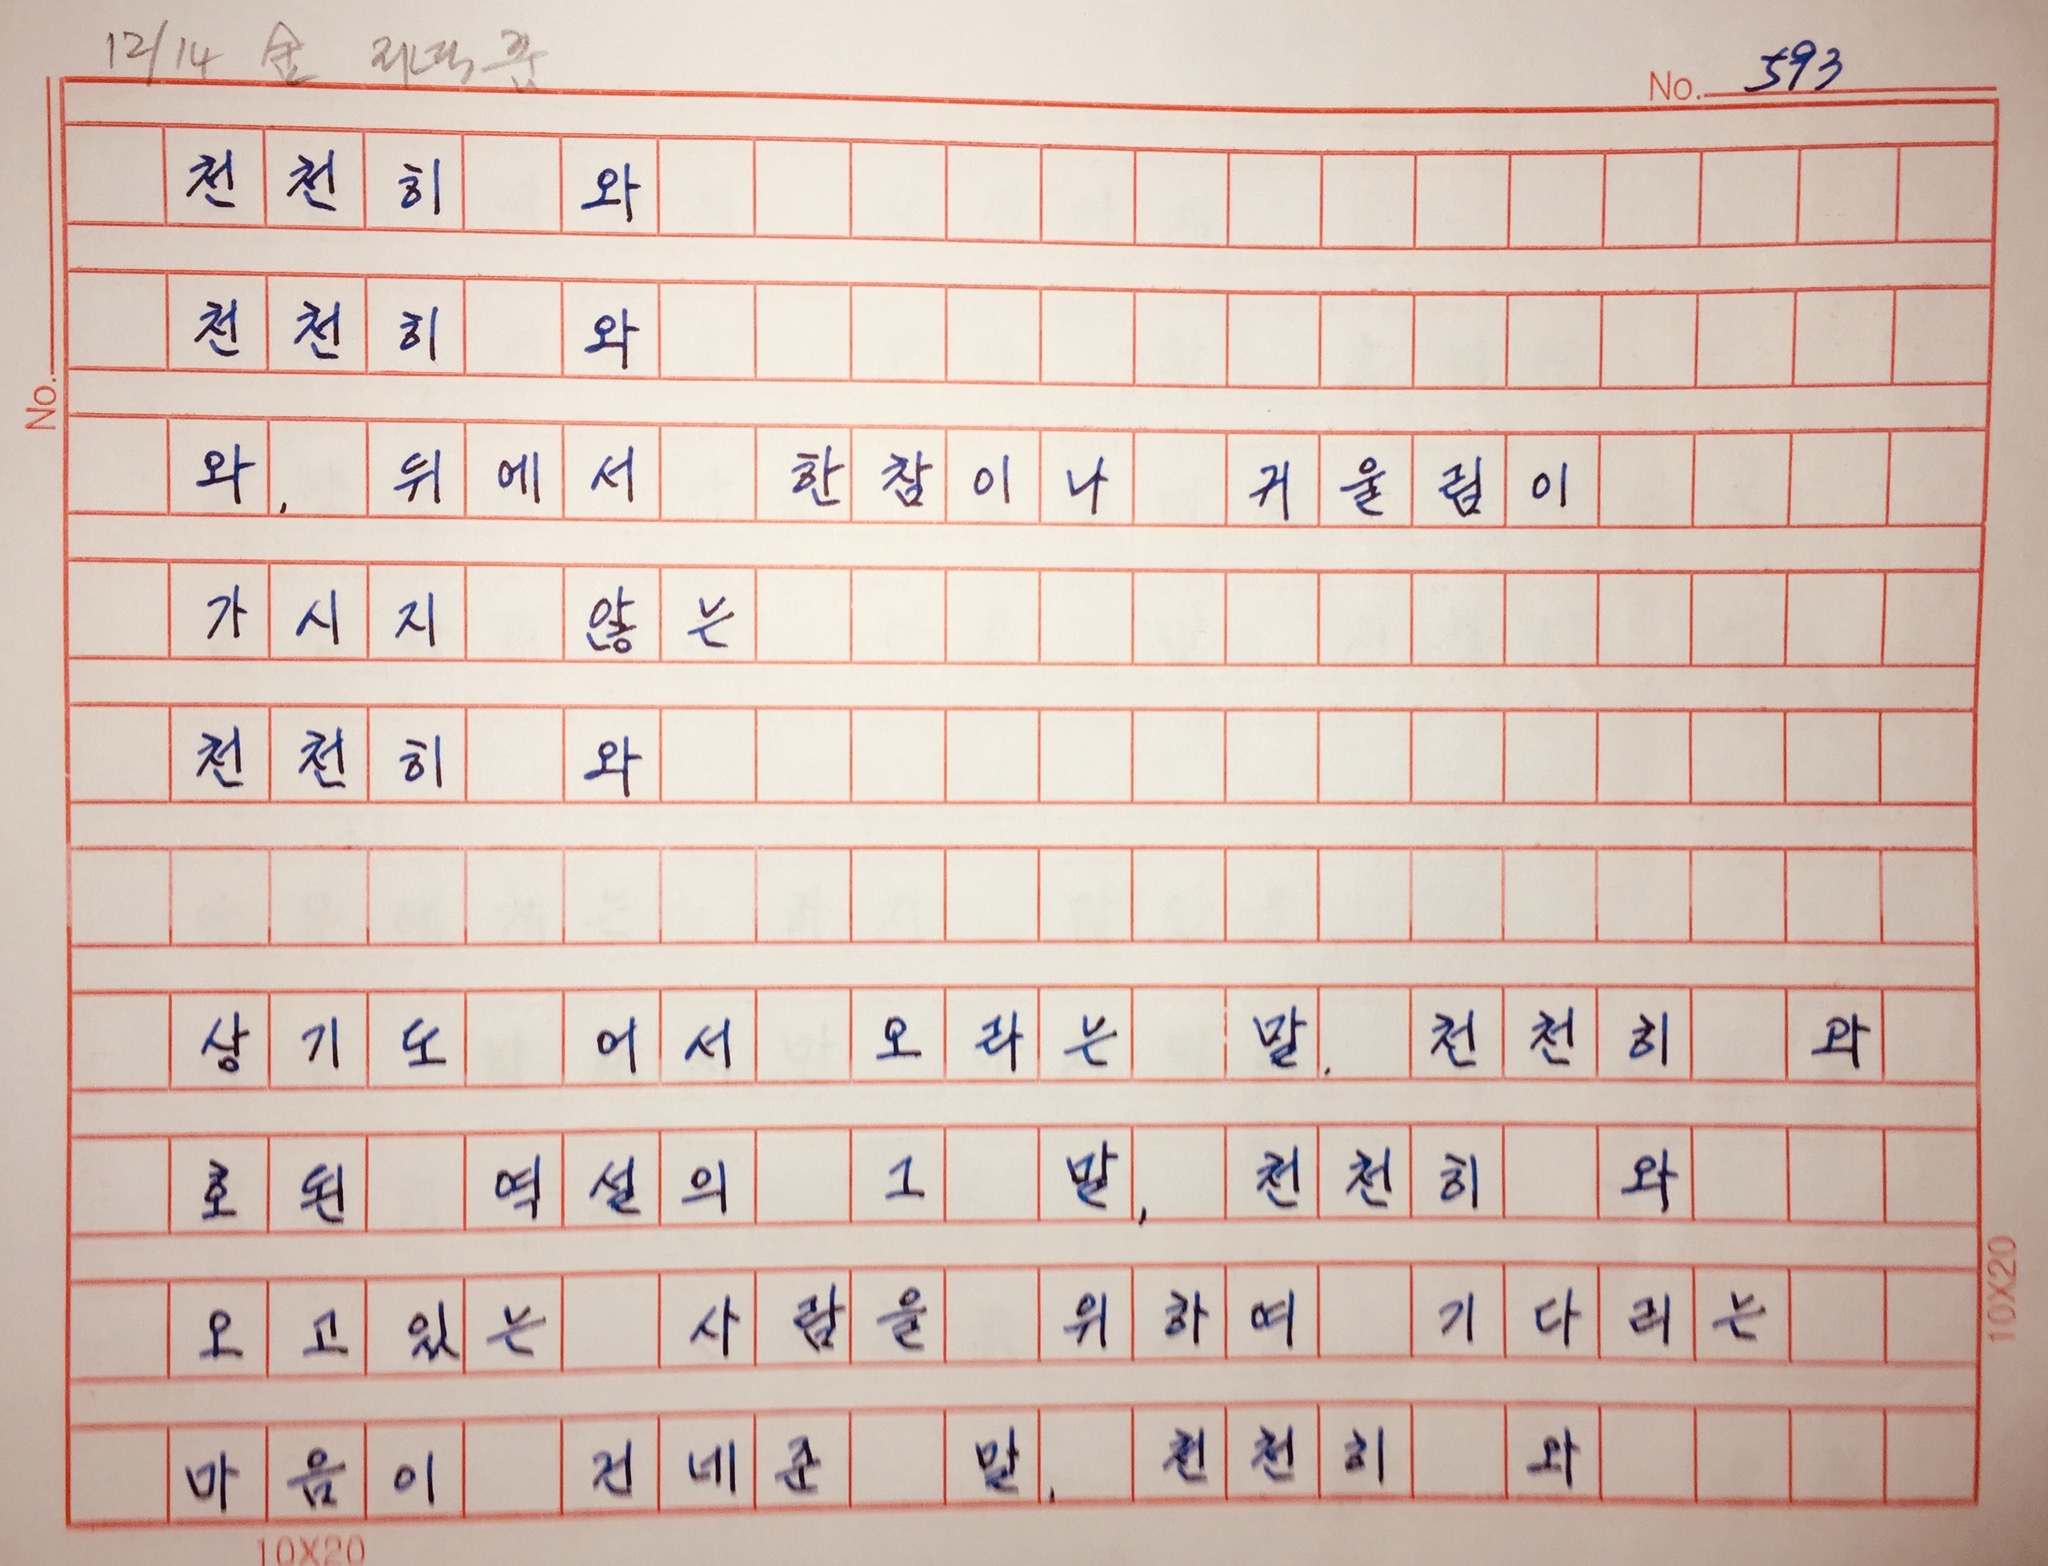 12/14 金
No. 593
천천히 와
천천히 와
와, 뒤에서 한참이나 귀울림이
가시지 않는
천천히 와
상기도 어서 오라는 말, 천천히 와
호된 역설의 그 말, 천천히 와
오고있는 사람을 위하여 기다리는
마음이 건네준 말, 천천히 와
No.
10X20
10X20